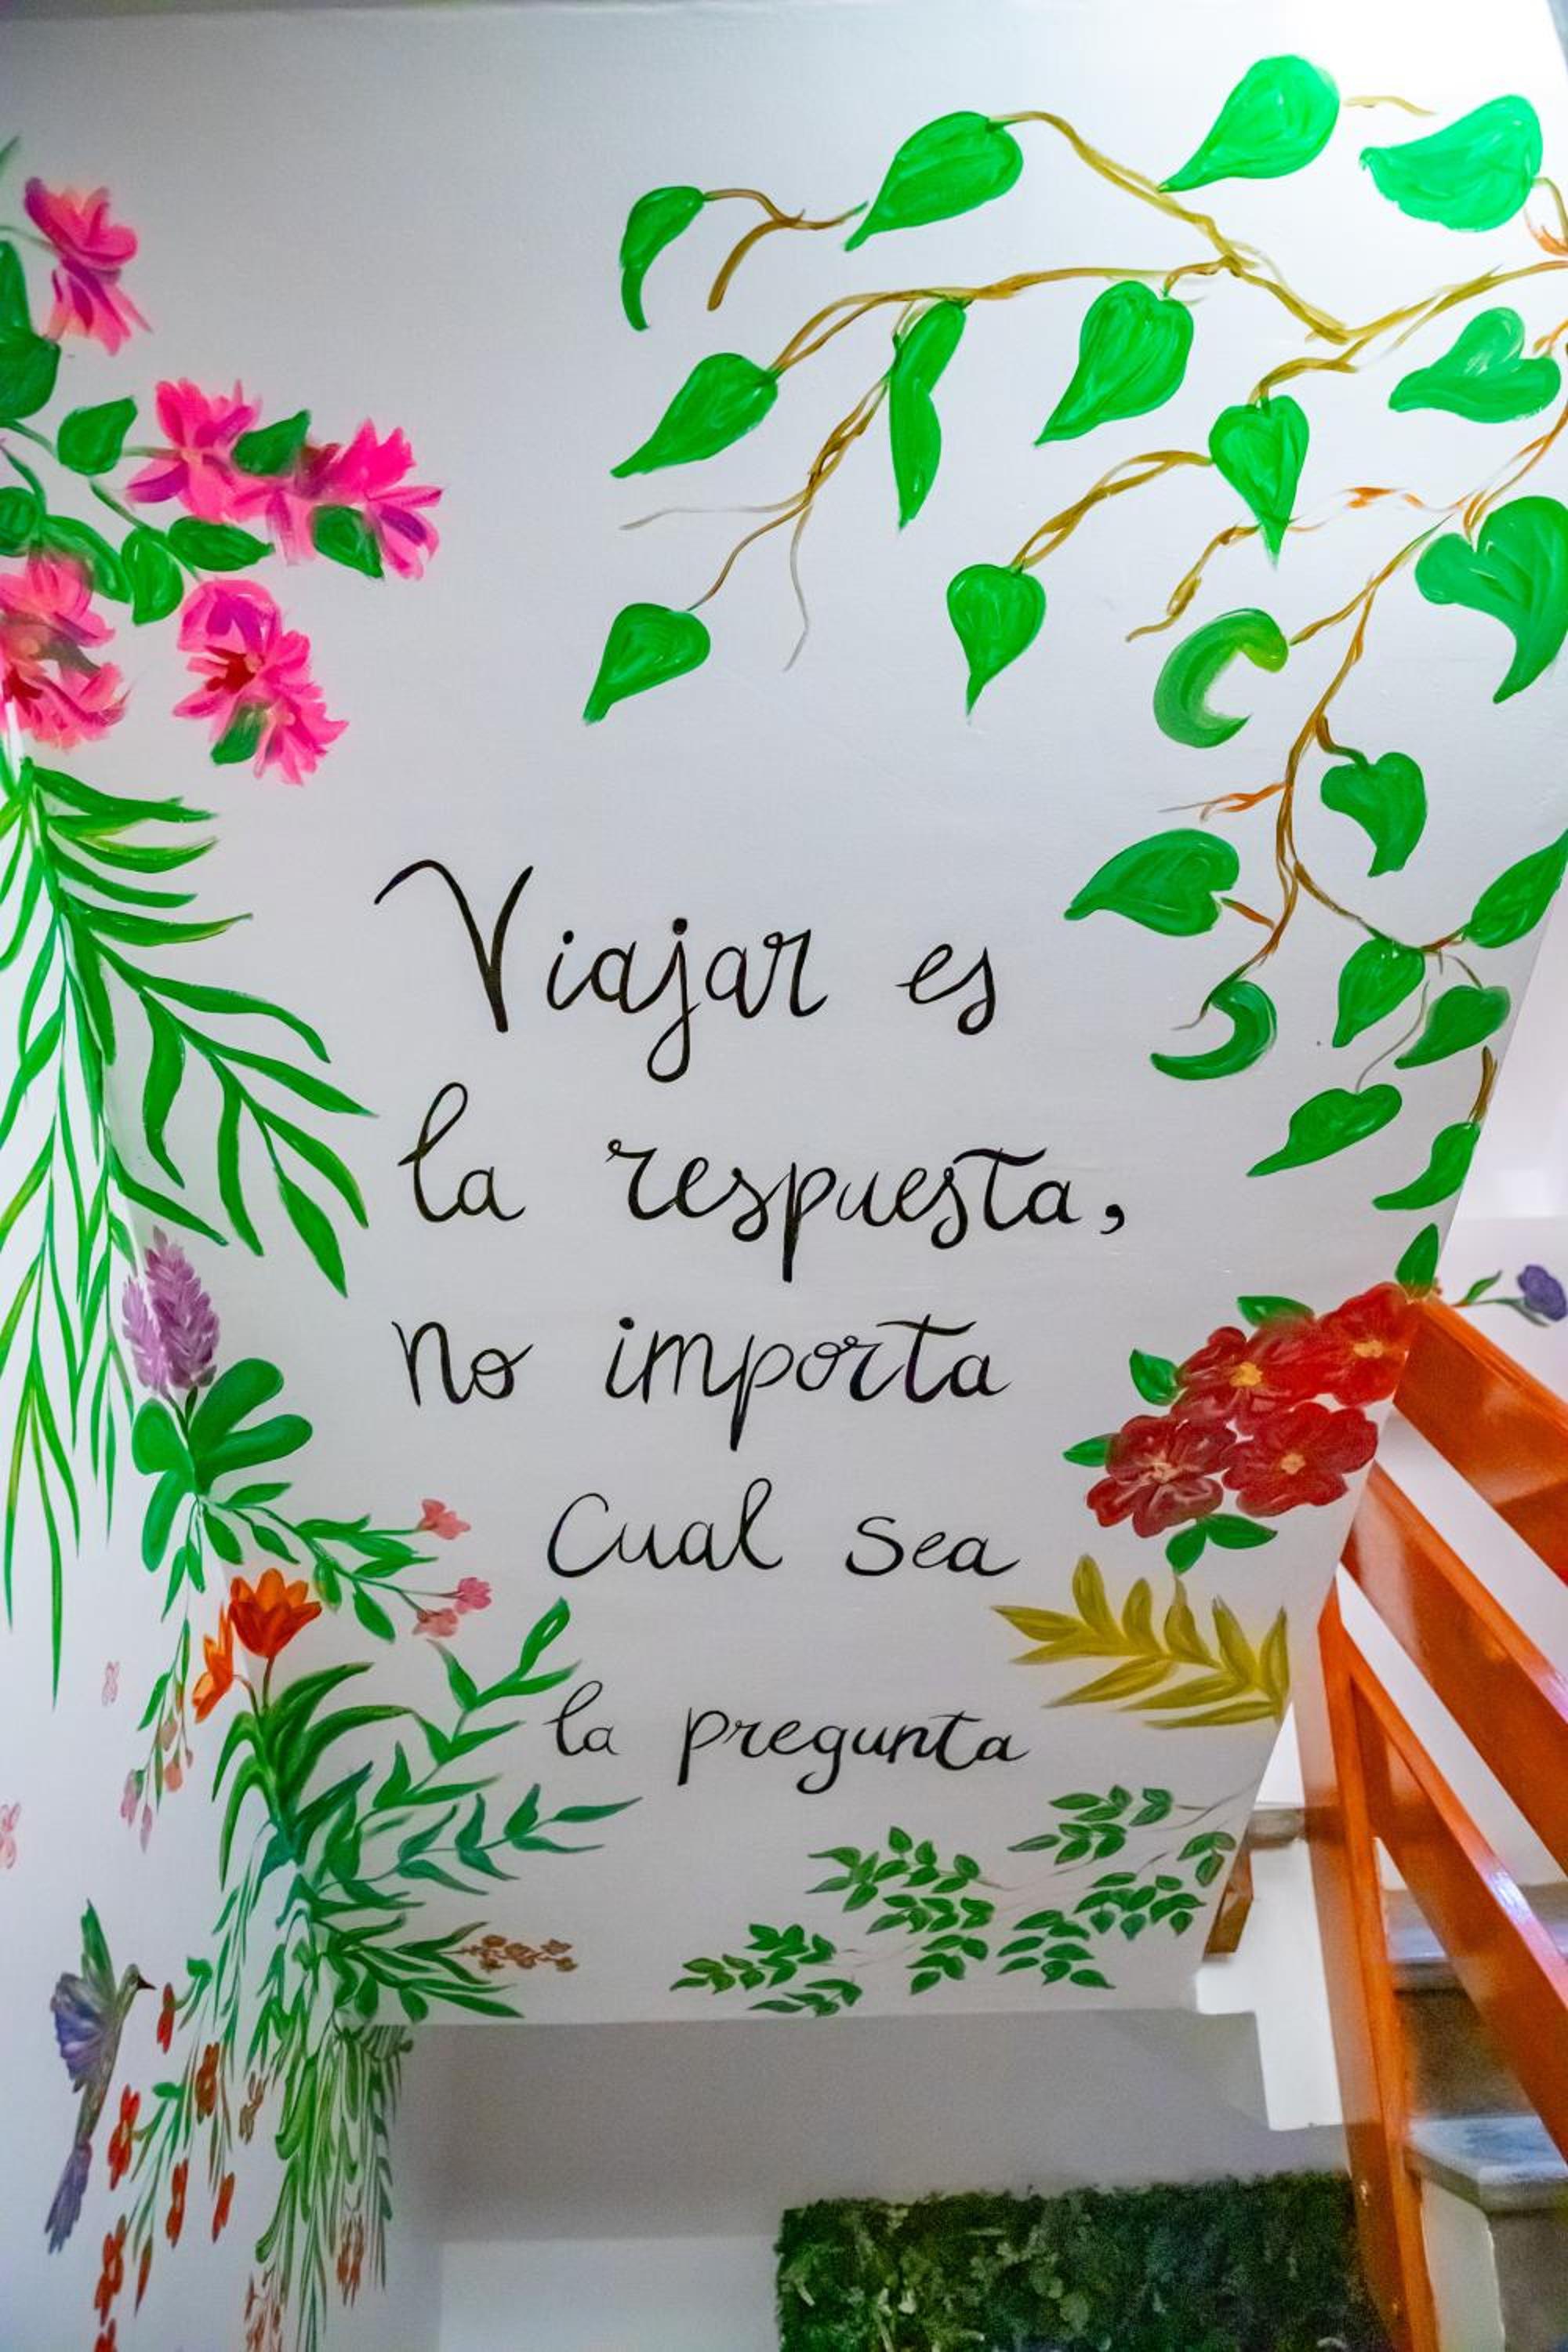 Viajar es
la respuesta,
no importa
Cual sea
la pregunta